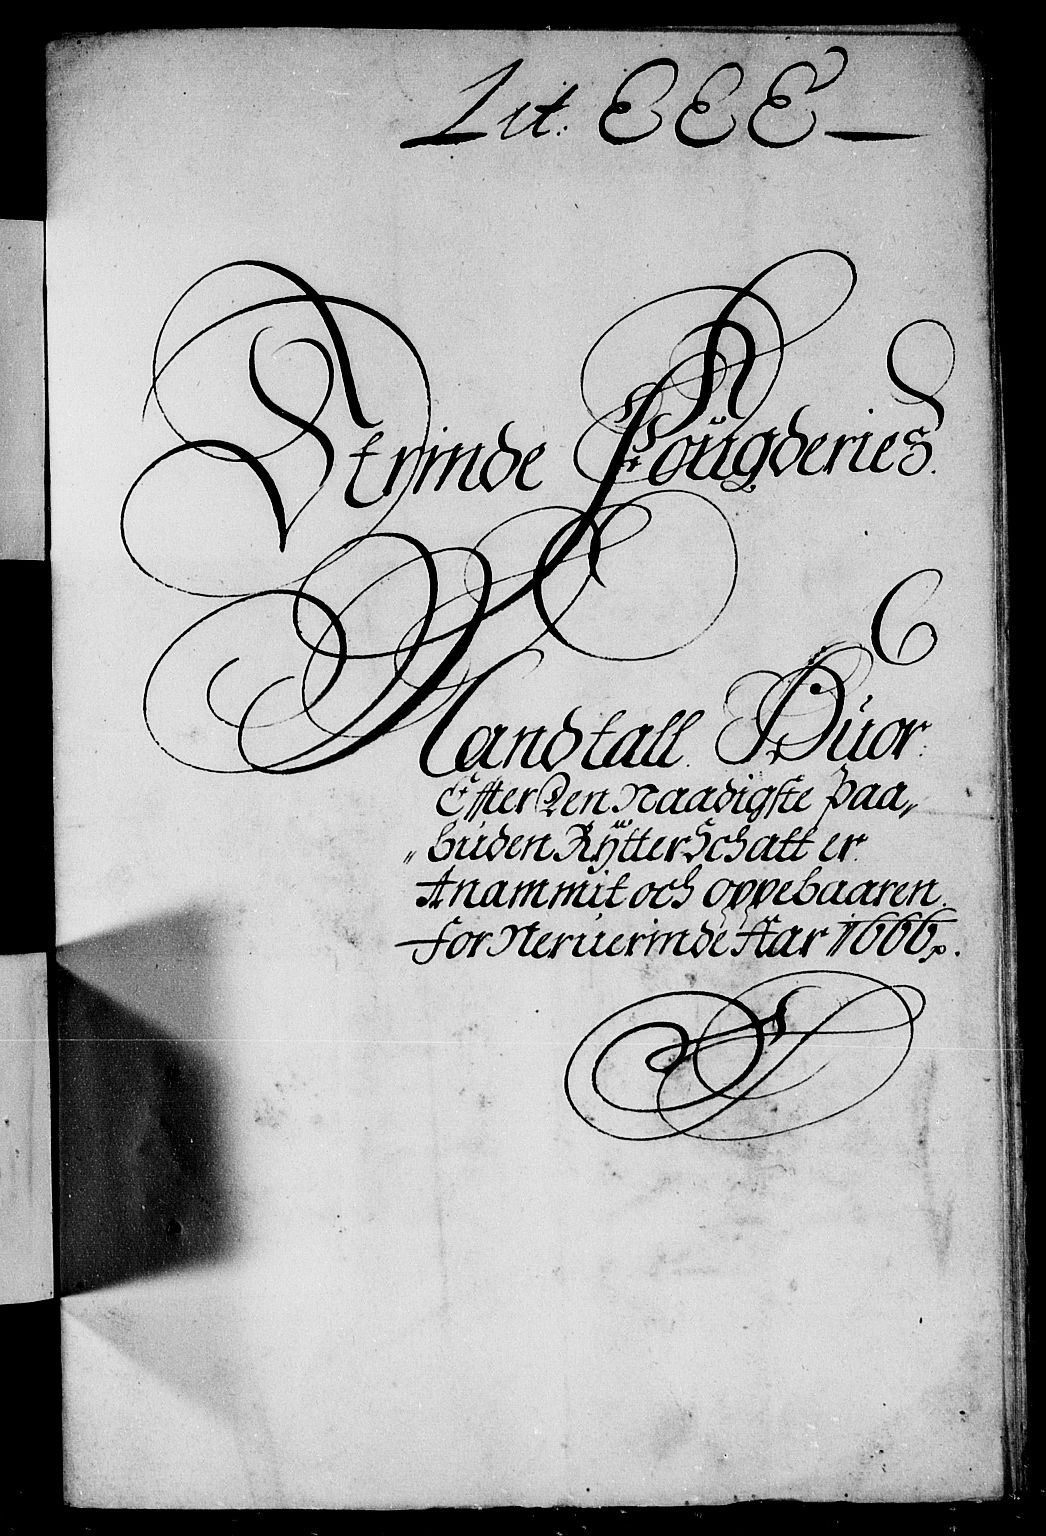 Lit. EEE
Strinde Fougderies.
Mandtall. Huor.
Effter Den Naadigste paa„
„buden Rÿtter Schatt er
Anammit och oppebaaren.
for Neruerinde Aar 1666.